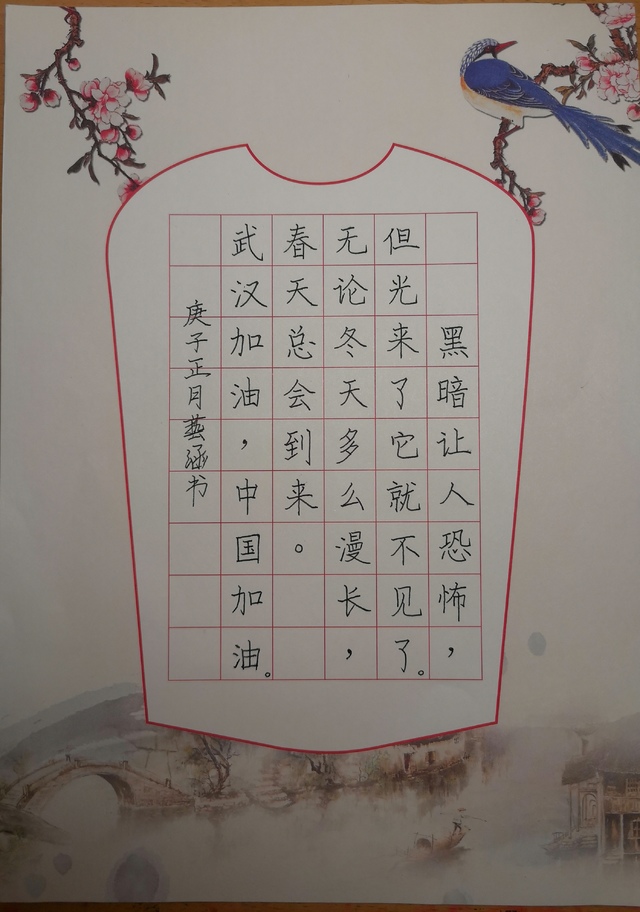 黑暗让人恐怖，
但光来了它就不见了。
无论冬天多么漫长，
春天总会到来。
武汉加油，中国加油。
庚子正月藝涵书